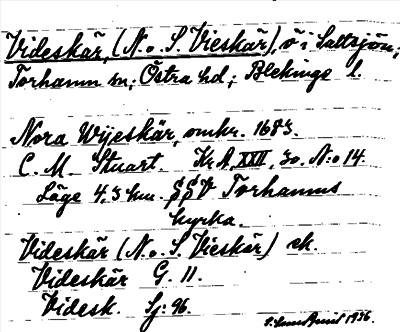 Videskär, (N. o. S. Vieskär), ö i Saltsjön;
Torhamn sn; Östra hd; Blekinge l.
Nora Wijeskär, omkr. 1683.
C. M. Stuart. Kr A, XXII, 30. N:o 14.
Läge 4,3 km. SSV Torhamns
kyrka.
Videskär (N. o. S. Vieskär) ek.
Videskär G. 11.
Videsk. Sj: 96.
1936.